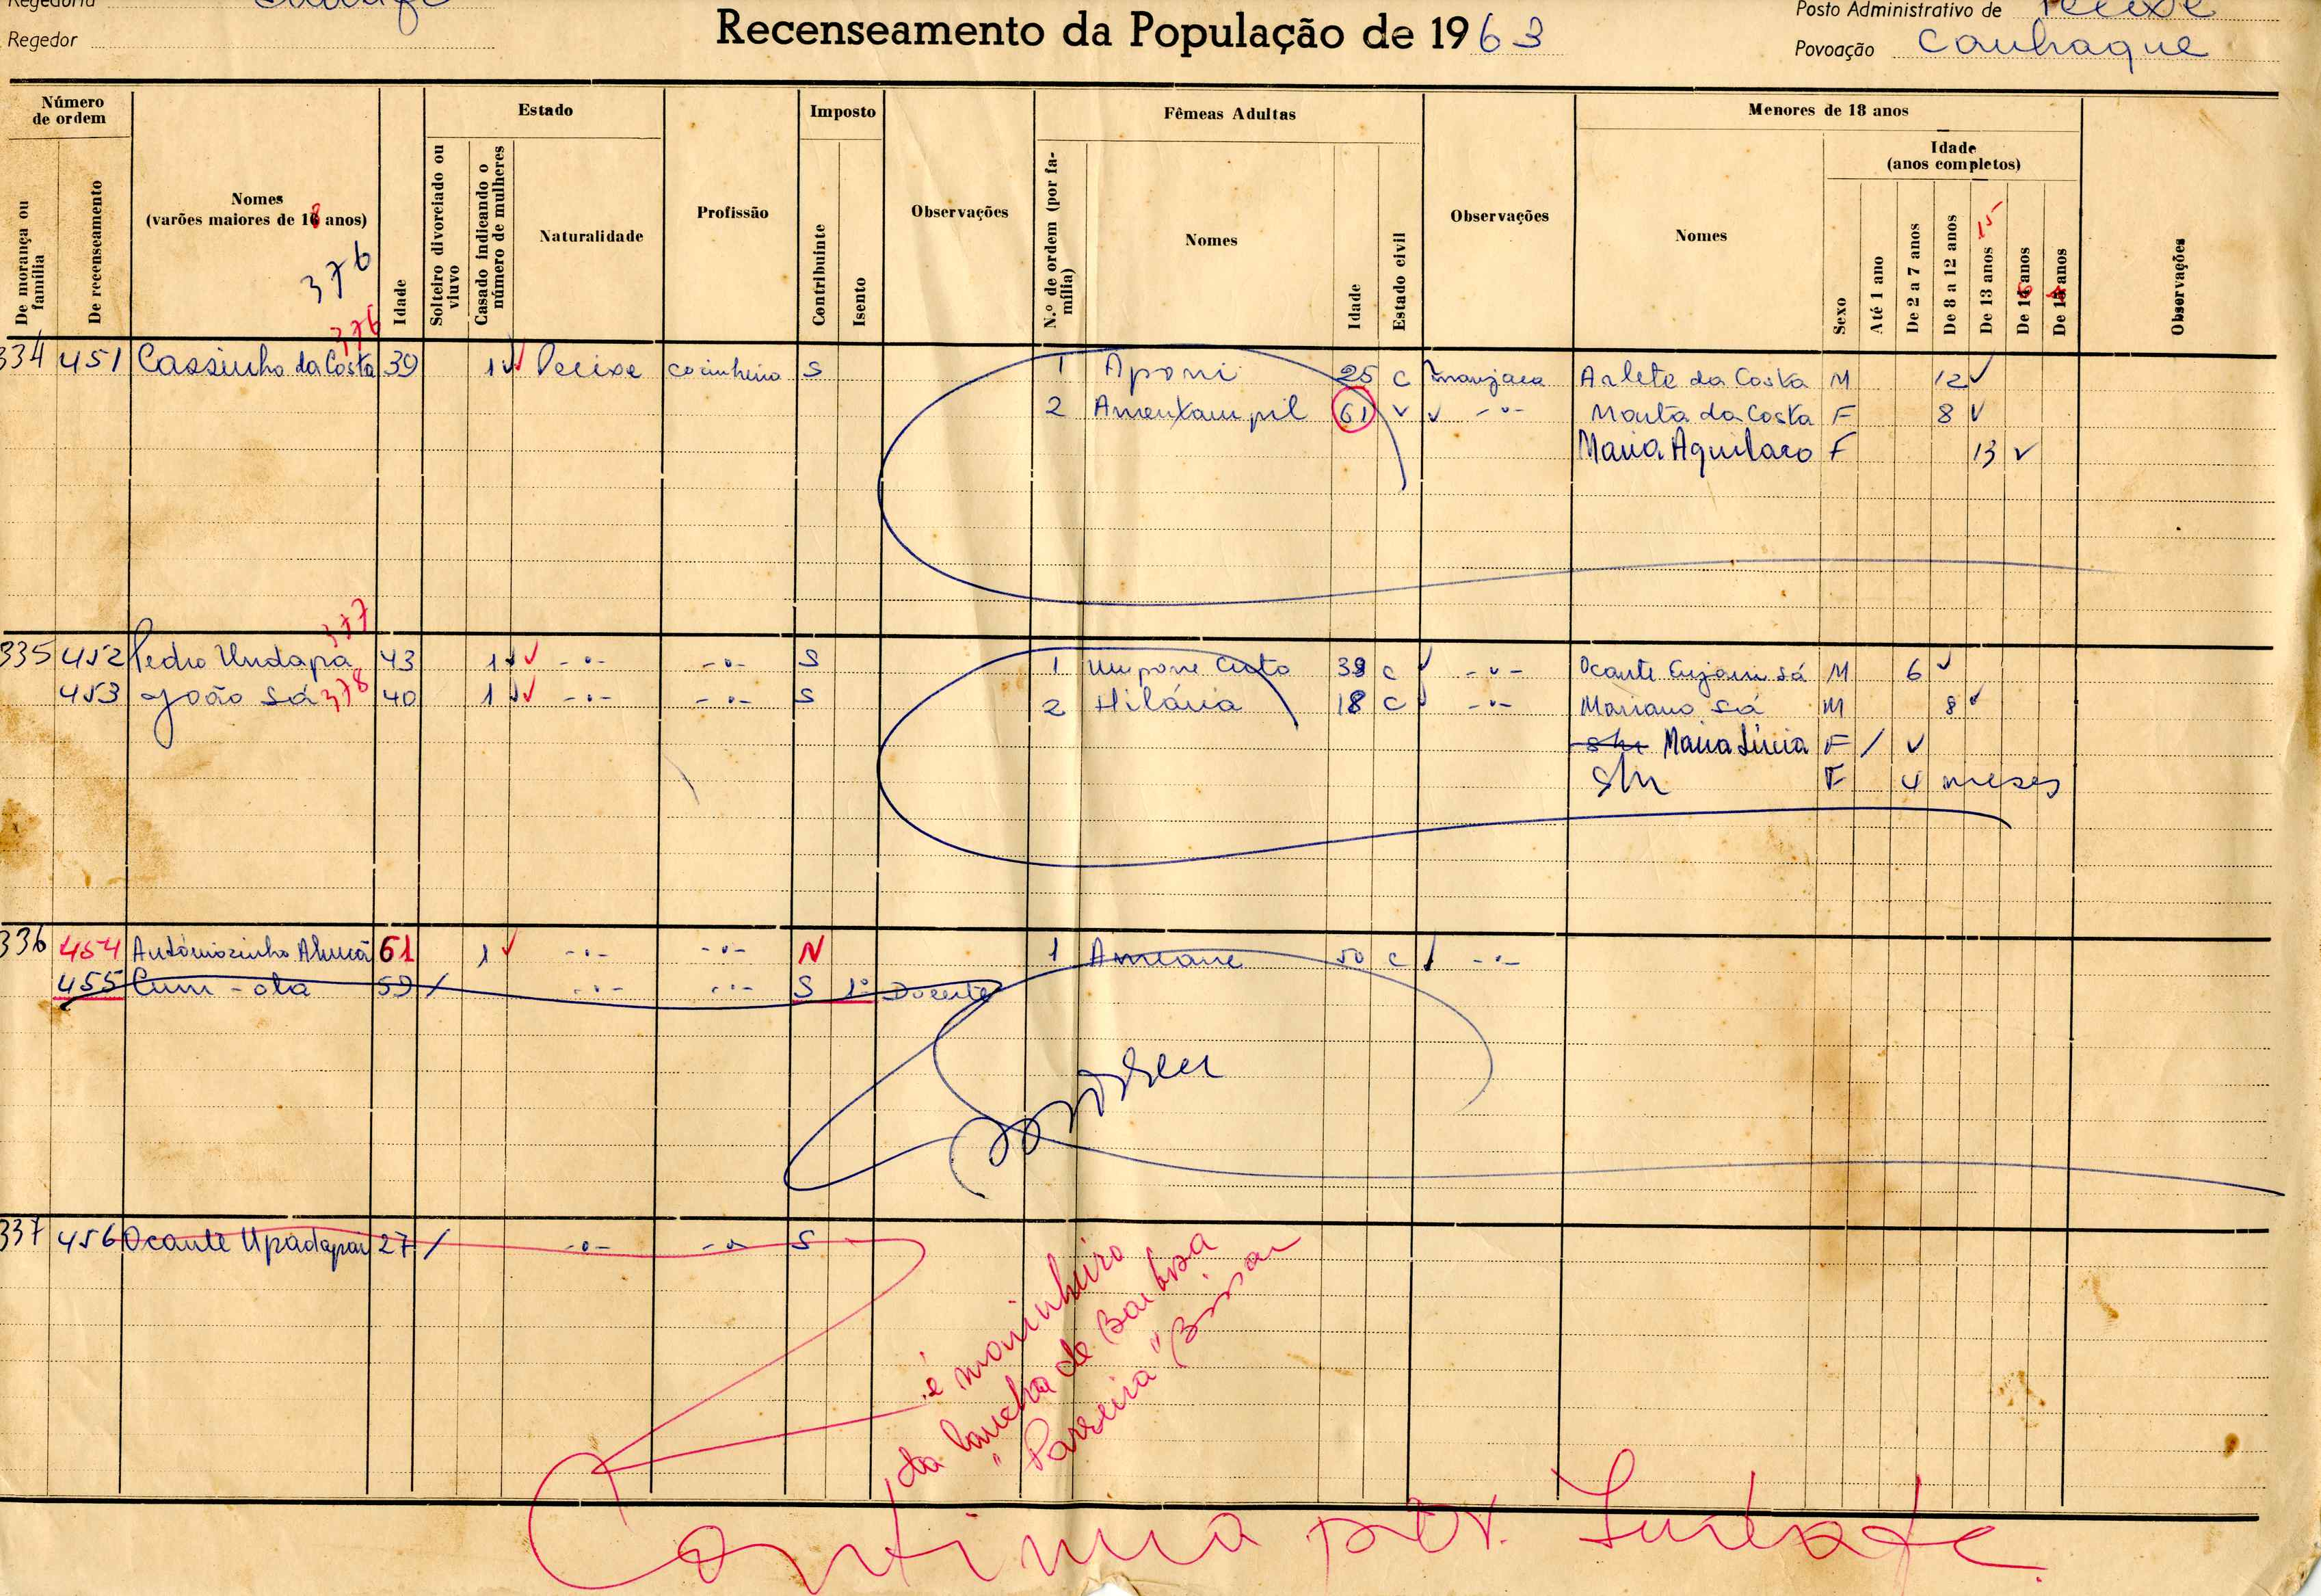 Regedoria
Regedor
Recenseamento da População de 1963
Posto Administrativo de Pecixe
Povoação Cauhaque
Número de ordem
De morança ou família
De recenseamento
Nomes
(varões maiores de 18 anos)
376
376
Idade
Estado
Solteiro divorciado ou viuvo
Casado indicando o número de mulheres
Naturalidade
Profissão
Imposto
Contribuinte
Isento
Observações
Fêmeas Adultas
N.º de ordem (por família)
Nomes
Idade
Estado civil
Observações
Menores de 18 anos
Nomes
Sexo
Idade
(anos completos)
Até 1 ano
De 2 a 7 anos
De 8 a 12 anos
De 13 anos 15
De 16 anos
De anos
Observações
334 451 Cassinho da Costa 39 1 Pecixe cosinheiro S 1 Aponi 25 C manjaca Arlete da Costa M 12
2 61 V -"- Marta da Costa F 8
Maria Aquilaro F 13
377
335 452 Pedro Undapa 43 1 -"- -"- S 1 Umpone Cuto 38 C -"- Ocante Sá M 6
453 João Sá 378 40 1 -"- -"- S 2 Hilária 18 C -"- Mariano Sá M 8
s/n Maria Lúcia F /
S/n F 4 meses
336 454 Antóniozinho 61 1 -"- -"- N 1 Ameane 50 C -"-
455 Cum-ota 59 / -"- -"- S 1º Doente
337 456 Ocante Upadapau 27 / -"- -"- S
é marinheiro
da lancha de Barbosa
"Parreira" Bissau
Continua por.